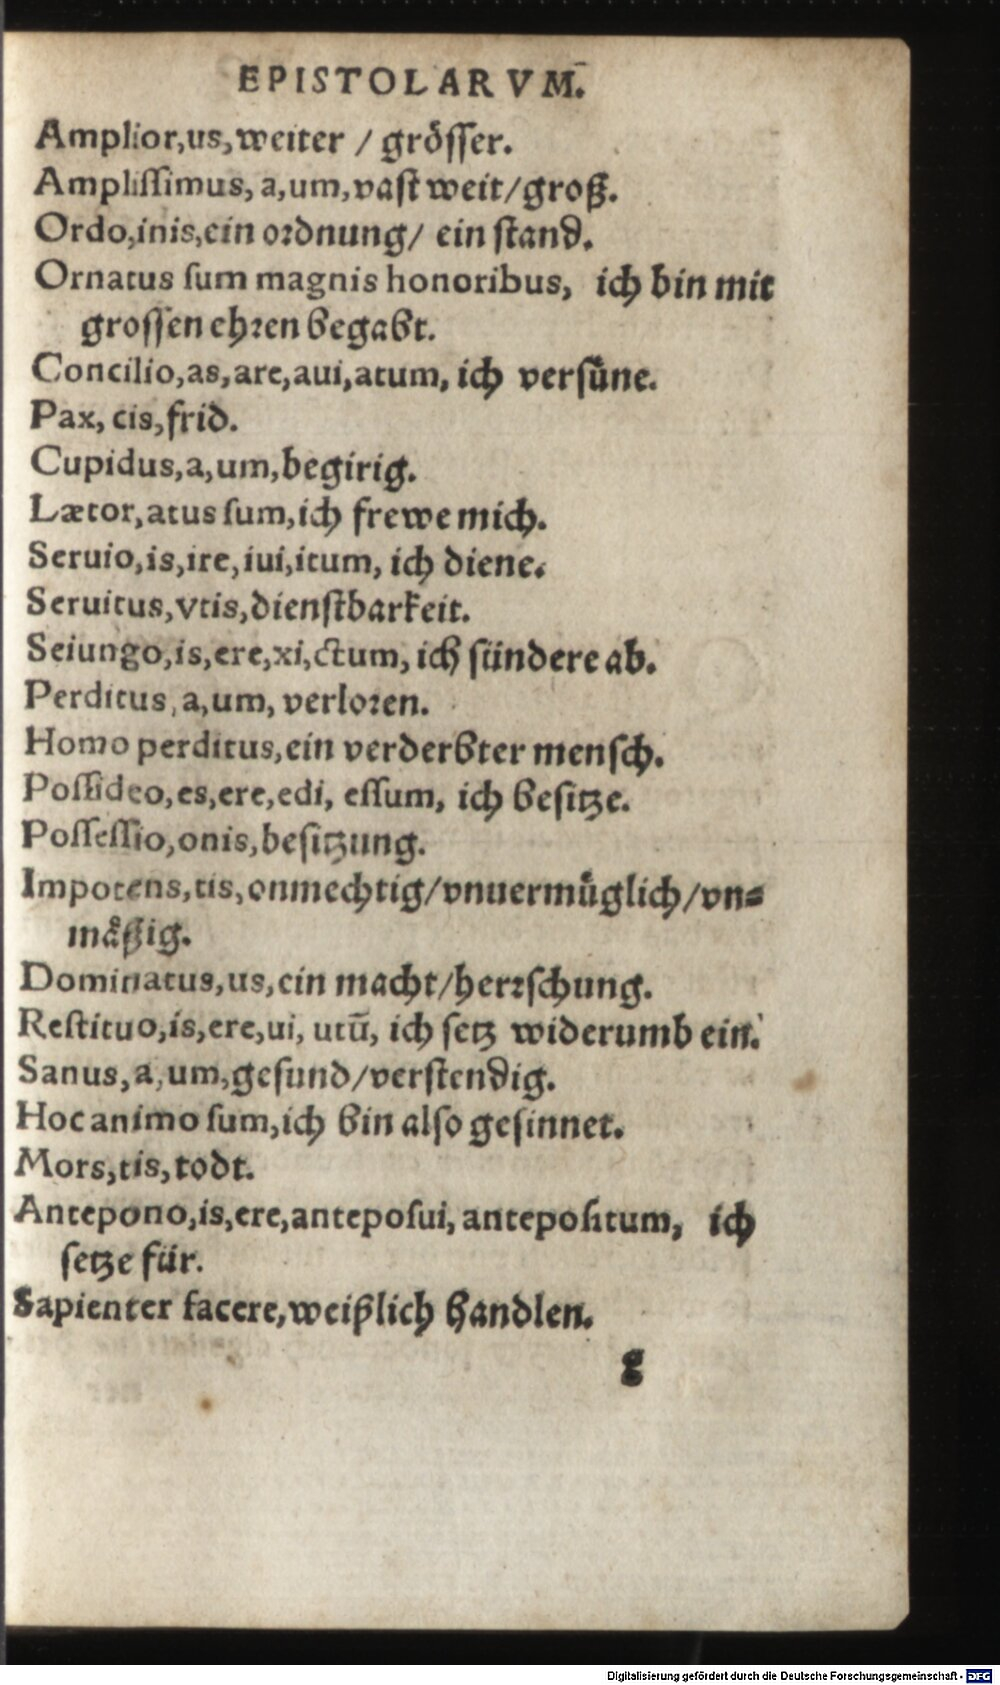 EPISTOLARVM.
Amplior,us,weiter / grösser.
Amplissimus, a,um,vast weit/groß.
Ordo,inis,ein ordnung/ ein stand.
Ornatus sum magnis honoribus, ich bin mit
grossen ehren begabt.
Concilio,as,are,aui,atum, ich versůne.
Pax, cis,frid.
Cupidus,a,um,begirig.
Lætor,atus sum,ich frewe mich.
Seruio,is,ire,iui,itum, ich diene.
Seruitus,vtis,dienstbarkeit.
Seiungo,is,ere,xi,ctum, ich sündere ab.
Perditus, a,um, verloren.
Homo perditus,ein verderbter mensch.
Possideo,es,ere,edi, essum, ich besitze.
Possessio,onis,besitzung.
Impotens,tis,onmechtig/vnuermůglich/vn-
mäßig.
Dominatus,us,ein macht/herrschung.
Restituo,is,ere,ui, utū, ich setz widerumb ein.
Sanus,a,um,gesund/verstendig.
Hoc animo sum,ich bin also gesinnet.
Mors,tis,todt.
Antepono,is,ere,anteposui, antepositum, ich
setze für.
Sapienter facere,weißlich handlen.
g
Digitalisierung gefördert durch die Deutsche Forschungsgemeinschaft - DFG